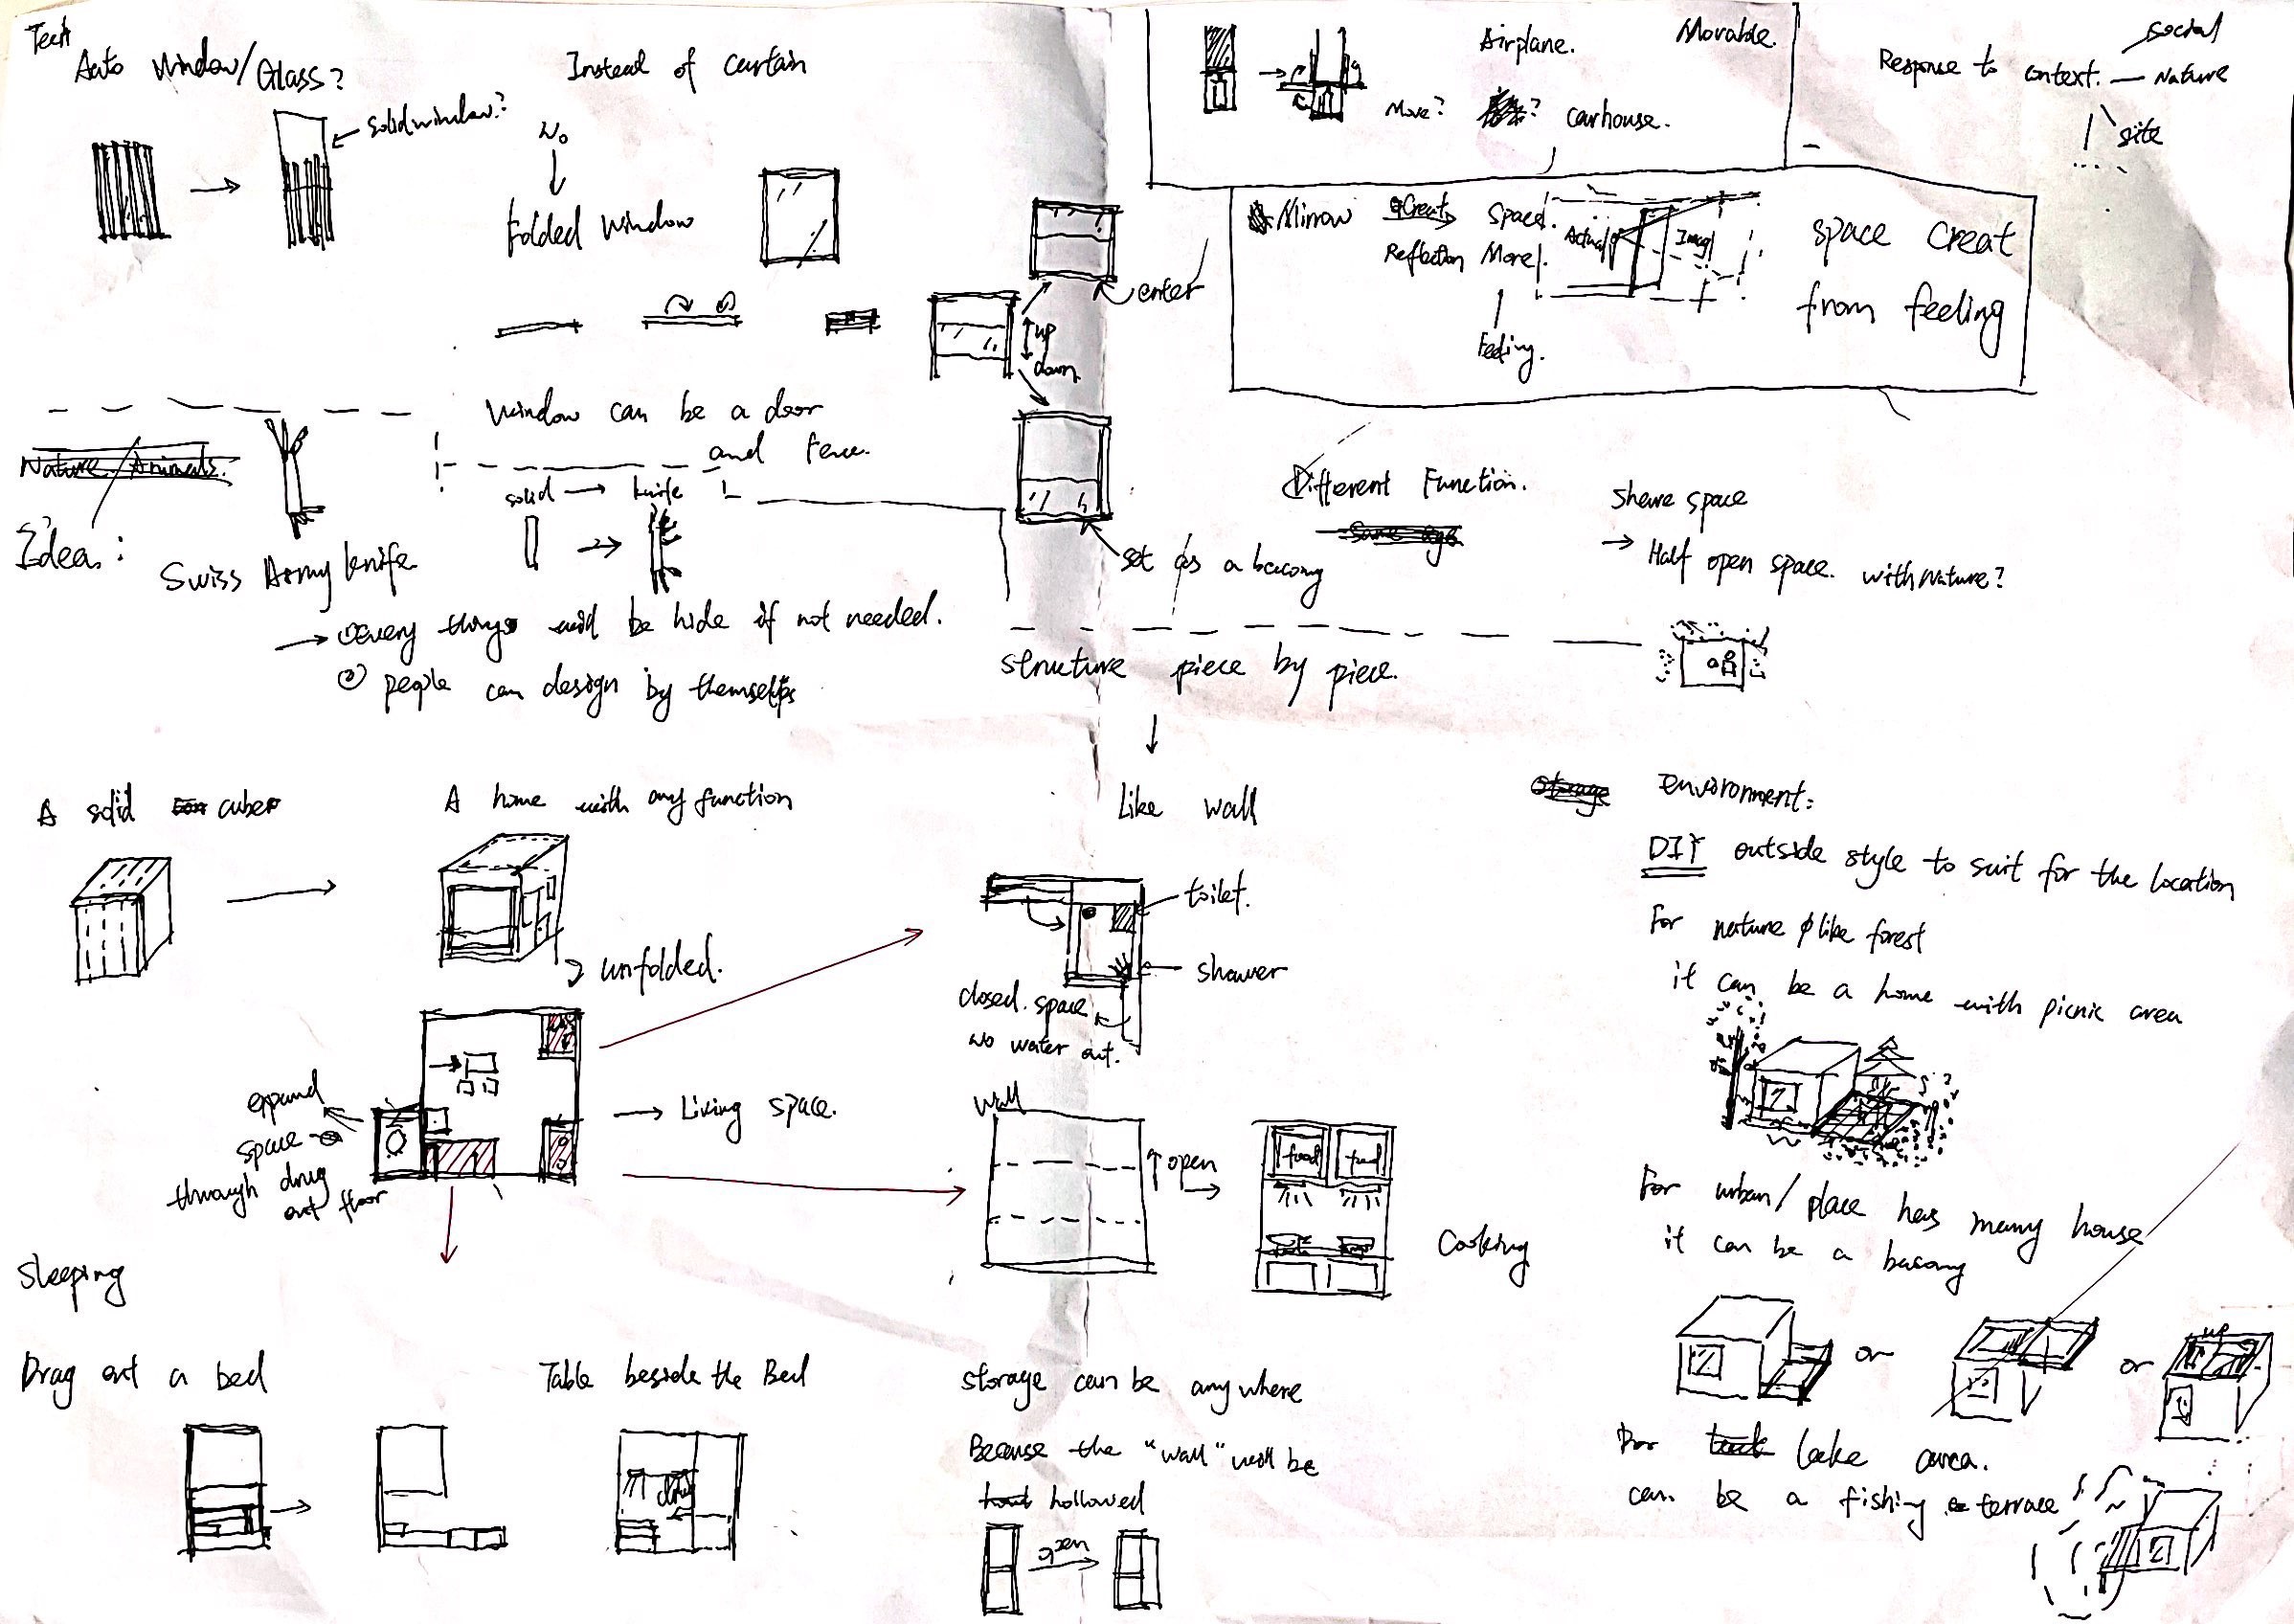 Tech
Auto window/Glass?
Instead of curtain
solid window?
No
Folded window
up
down
enter
window can be a door
and Fence.
set as a bacony
Airplane.
Movable.
Move?
?
carhouse.
Response to context.
social
Nature
site
Mirrow
Creat
Space.
Reflection More.
Feeling.
Actual
Imag
space creat
from feeling
Nature / Animals.
Idea:
Swiss Army knife
solid → knife
→ ① every things will be hide if not needed.
② people can design by themselfs
Different Function.
Share space
→ Half open space. with nature?
structure piece by piece.
Like wall
A solid cube
A home with any function
unfolded.
toilet.
shower
closed space
No water out.
expand
space
through drug
out floor
→ Living space.
wall
open
food
food
Cooking
Sleeping
Drag out a bed
Table beside the Bed
storage can be any where
Because the "wall" will be
hollowed
open
storage
environment:
DIY outside style to suit for the location
For nature like forest
it can be a home with picnic area
For urban/place has many house
it can be a bacony
or
or
up
For lake area.
can be a fishing terrace